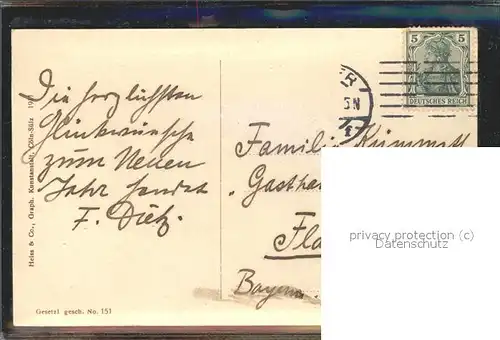 Die herzlichsten
Glückwünsche
zum Neuen
Jahr sendet
F. Dietz.
5 5
DEUTSCHES REICH
ER
5N
f
Familie Kümmett
Gastha
Fla
Bayern.
privacy protection (c)
Datenschutz
Heiss & Co., Graph. Kunstanstalt, Cöln-Sülz 19
Gesetzl gesch. No. 151